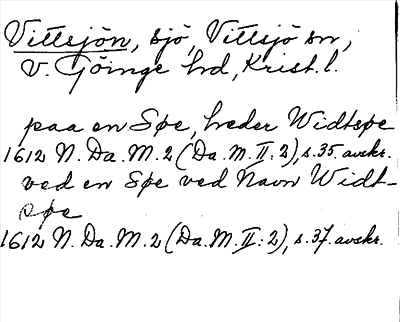 Vittsjön, sjö, Vittsjö sn,
V. Göinge hd, Krist. l.
paa en Søe, heder Widtspe
1612 N. Da. M. 2 (Da. M. II: 2), s. 35. avskr.
ved en Søe ved Navn Widt-
spe
1612 N. Da. M. 2 (Da. M. II: 2), s. 37. avskr.